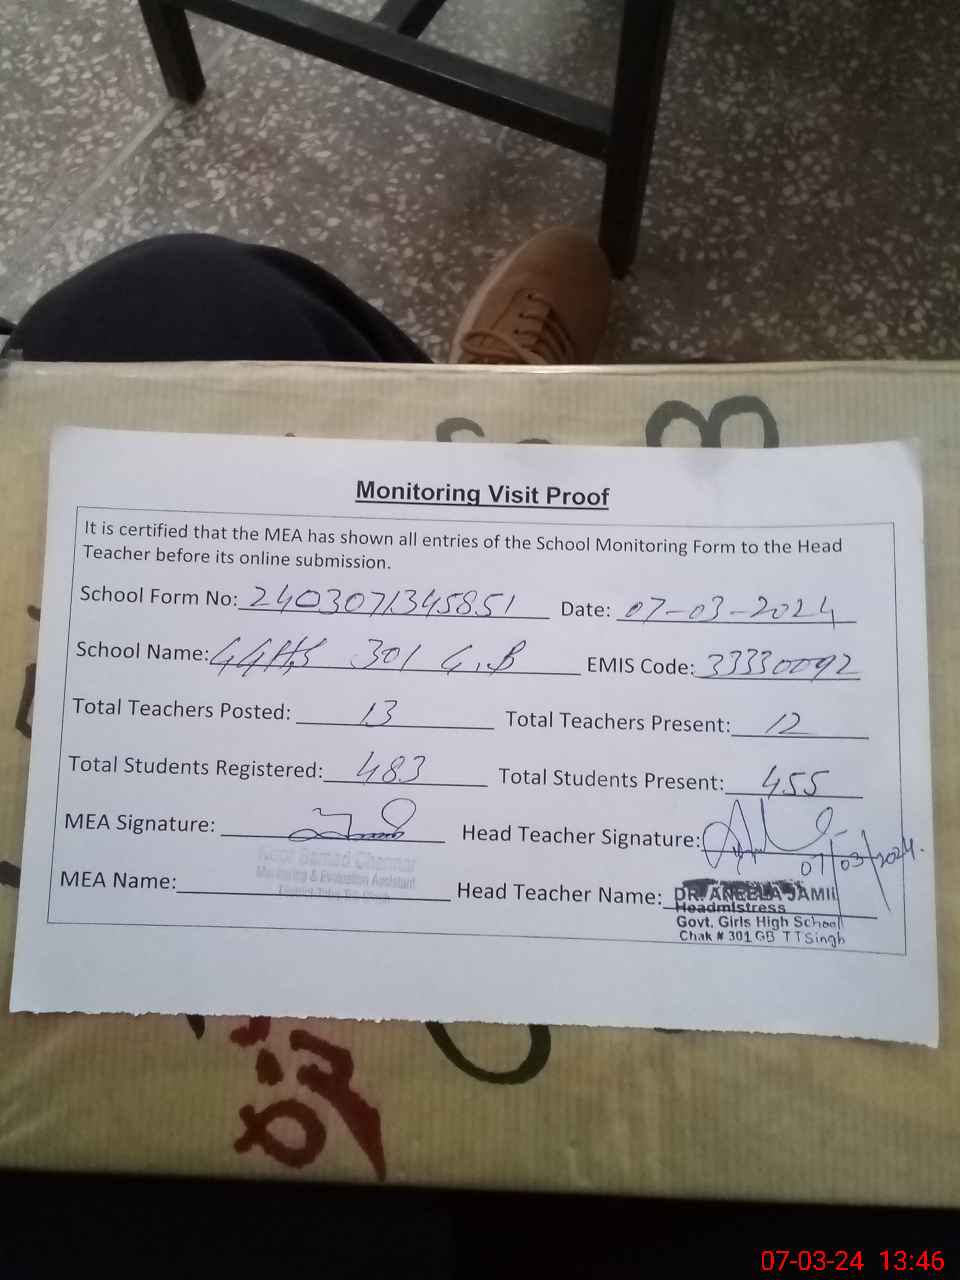 Monitoring Visit Proof
It is certified that the MEA has shown all entries of the School Monitoring Form to the Head
Teacher before its online submission.
School Form No: 2403071345851 Date: 07-03-2024
School Name: GGHS 301 G.B EMIS Code: 33330092
Total Teachers Posted: 13 Total Teachers Present: 12
Total Students Registered: 483 Total Students Present: 455
MEA Signature: Head Teacher Signature:
07/03/2024.
Samad
Monitoring & Evaluation Assistant
MEA Name: Head Teacher Name: DR. ANEELA JAMIL
Headmistress
Govt. Girls High School
Chak # 301 GB TTSingh
07-03-24 13:46